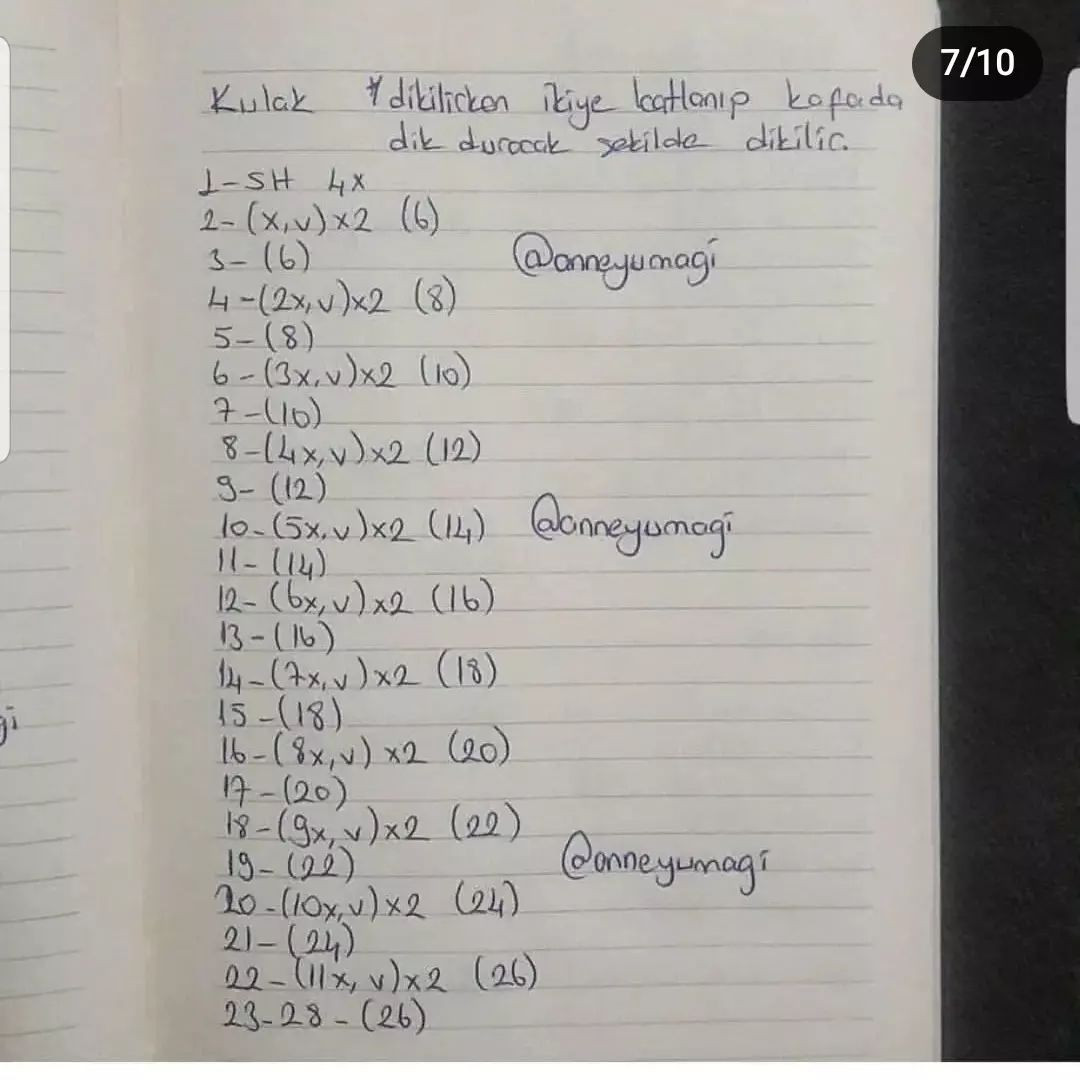 7/10
Kulak * dikilirken ikiye katlanıp kafada
dik duracak şekilde dikilir.
1-SH 4x
2-(x,v)x2 (6)
3-(6)
@anneyumagi
4-(2x,v)x2 (8)
5-(8)
6-(3x,v)x2 (10)
7-(10)
8-(4x,v)x2 (12)
9-(12)
10-(5x,v)x2 (14) @anneyumagi
11-(14)
12-(6x,v)x2 (16)
13-(16)
14-(7x,v)x2 (18)
gi
15-(18)
16-(8x,v)x2 (20)
17-(20)
18-(9x,v)x2 (22)
19-(22) @anneyumagi
20-(10x,v)x2 (24)
21-(24)
22-(11x,v)x2 (26)
23-28-(26)